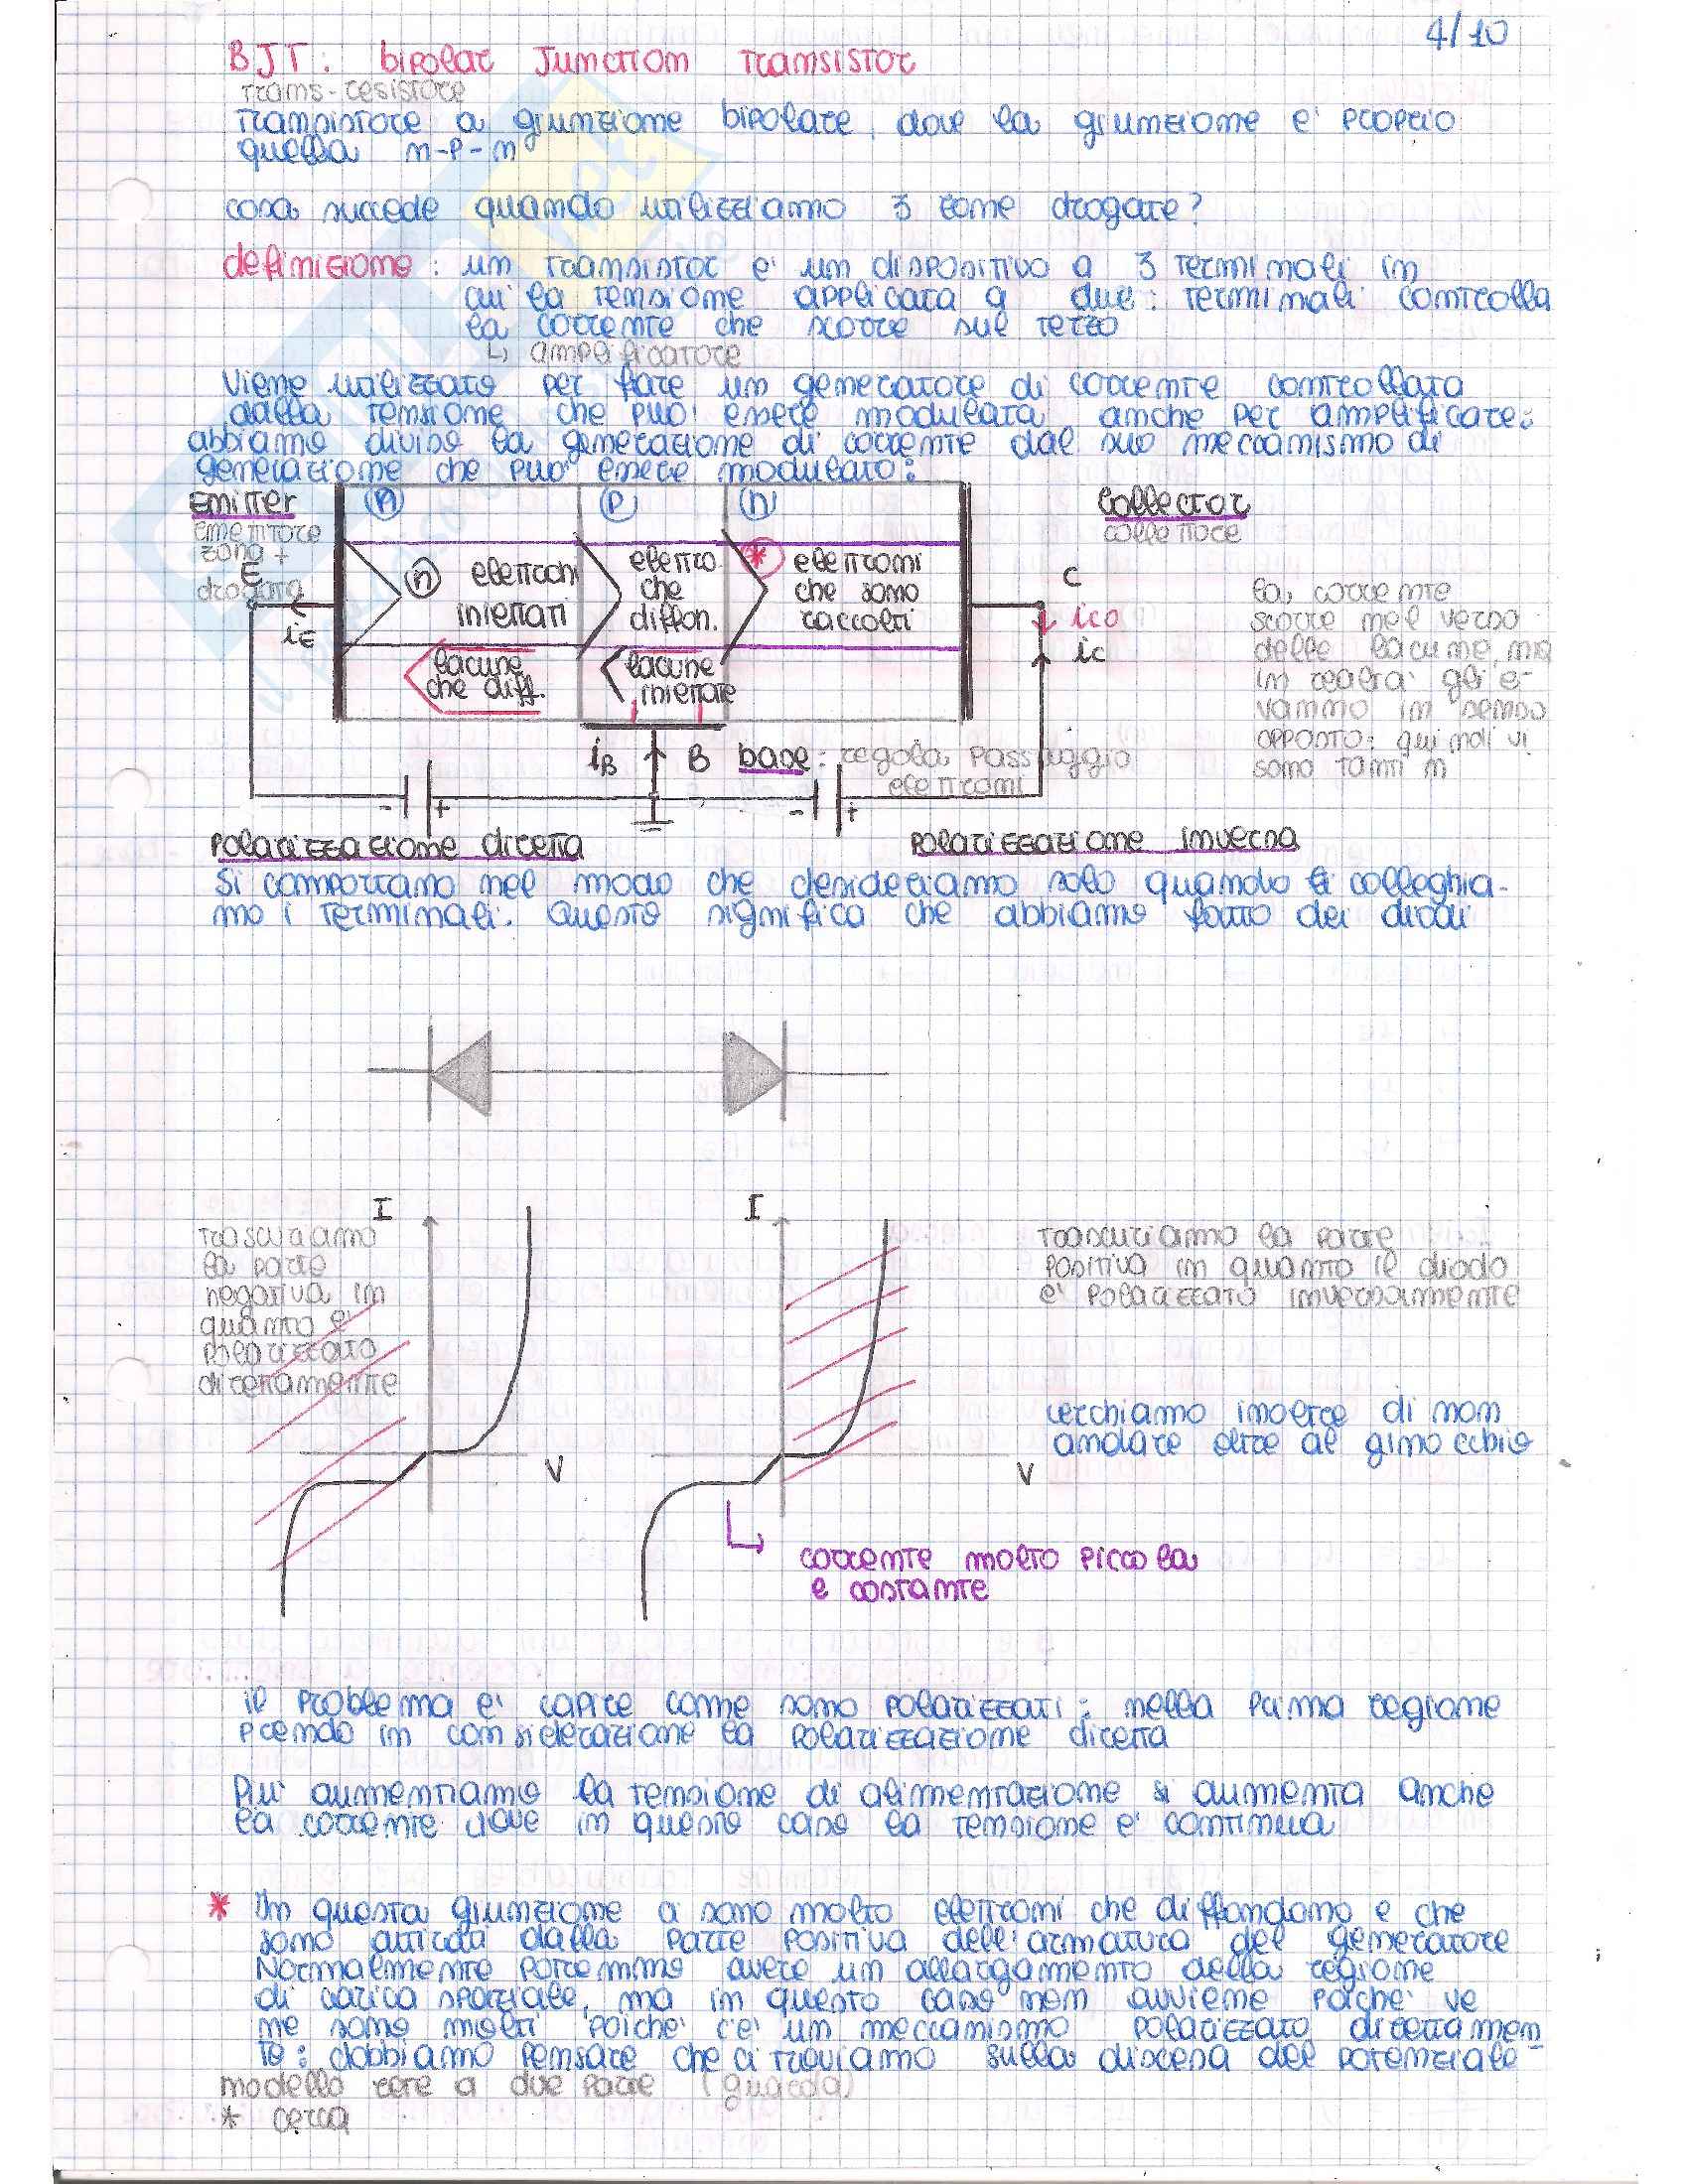 4/10
BJT: bipolar Junction Transistor
Trans-resistore
Transistore a giunzione bipolare, dove la giunzione e' proprio
quella n-p-n
cosa succede quando utilizziamo 3 zone drogate?
definizione: un transistor e' un dispositivo a 3 terminali in
cui la tensione applicata a due terminali controlla
la corrente che scorre sul terzo
↳ amplificatore
Viene utilizzato per fare un generatore di corrente controllata
dalla tensione che puo' essere modulata anche per amplificare:
abbiamo diviso la generazione di corrente dal suo meccanismo di
generazione che puo' essere modulato:
Emitter
emettitore
zona +
drogata
E
iE
n
p
n
n elettroni
iniettati
elettro.
che
diffon.
* elettroni
che sono
raccolti
lacune
che diff.
lacune
iniettate
Collector
collettore
C
ico
ic
la corrente
scorre nel verso
delle lacune, ma
in realta' gli e-
vanno in senso
opposto: quindi vi
sono tanti n
iB
B base: regola passaggio
elettroni
- +
- +
Polarizzazione diretta
Polarizzazione inversa
Si comportano nel modo che desideriamo solo quando li colleghia-
mo i terminali. Questo significa che abbiamo fatto dei diodi
I
V
trascuriamo
la parte
negativa in
quanto e'
polarizzato
direttamente
I
V
trascuriamo la parte
positiva in quanto il diodo
e' polarizzato inversamente
cerchiamo inoltre di non
andare oltre al ginocchio
corrente molto piccola
e costante
il problema e' capire come sono polarizzati: nella prima regione
prendo in considerazione la polarizzazione diretta
Piu' aumentiamo la tensione di alimentazione si aumenta anche
la corrente dove in questo caso la tensione e' continua
* In questa giunzione ci sono molto elettroni che diffondono e che
sono attirati dalla parte positiva dell'armatura del generatore
Normalmente potremmo avere un allargamento della regione
di carica spaziale, ma in questo caso non avviene poiche' ve
ne sono molti poiche' c'e' un meccanismo polarizzato direttamen
te: dobbiamo pensare che ci troviamo sulla discesa del potenziale
modello rete a due porte (guarda)
* cerca